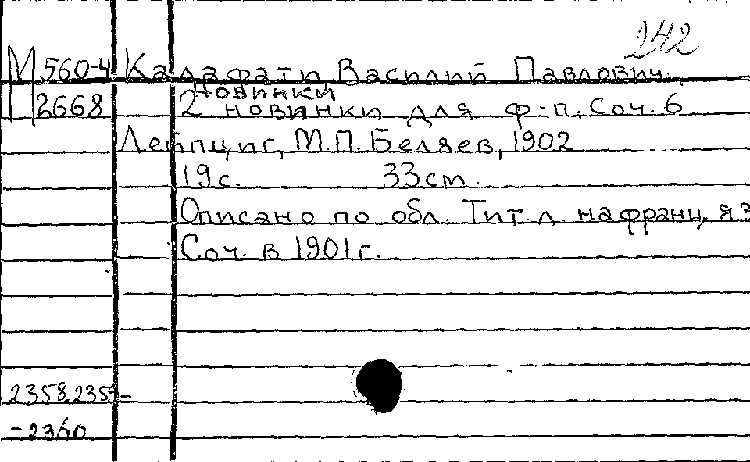 242
М 560-4 Калафати, Василий Павлович.
Новинки
2668 2 новинки для ф-п., Соч. 6
Лейпциг, М.П. Беляев, 1902
19с. 33cm.
Описано по обл. Тит. л. на франц. яз
Соч. в 1901г.
2358,235
-2360